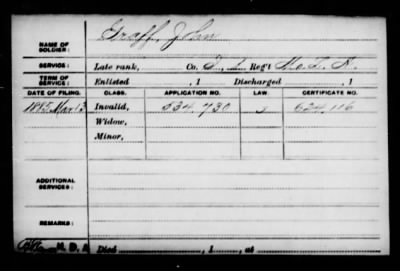 NAME OF SOLDIER: Graff, John
SERVICE: Late rank, Co. D, 1 Reg't Mo. L. A.
TERM OF SERVICE: Enlisted , 1 Discharged , 1
DATE OF FILING. CLASS. APPLICATION NO. LAW. CERTIFICATE NO.
1885 Mar 13 Invalid, 534.730 624.116
Widow,
Minor,
ADDITIONAL SERVICES:
REMARKS:
Died , 1 , at